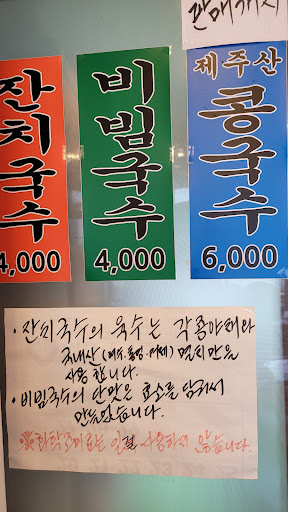 판매개시
잔치국수
4,000
비빔국수
4,000
제주산
콩국수
6,000
· 잔치국수의 육수는 각종야채와
국내산 (여수·통영·거제) 멸치만을
사용합니다.
· 비빔국수의 단맛은 효소를 담궈서
만들었습니다.
※화학조미료는 일절 사용하지 않습니다.